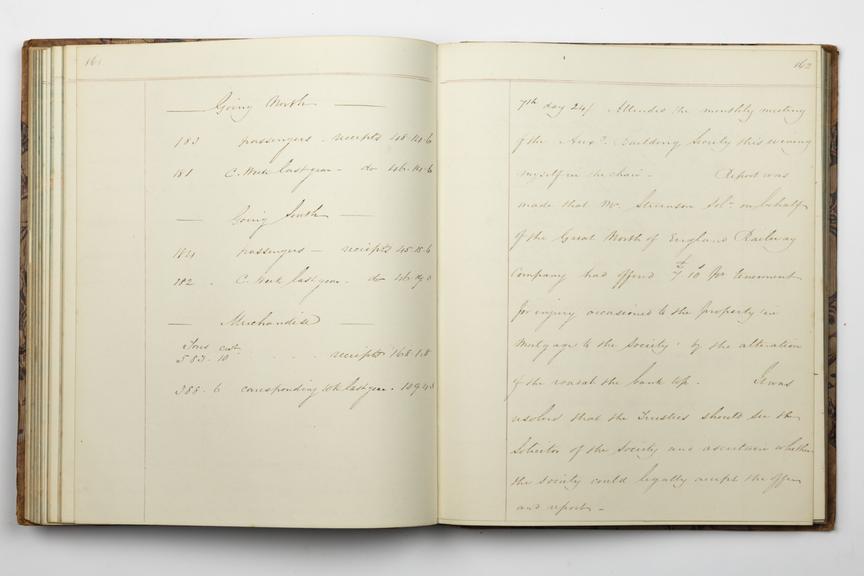 161
Going North
183 passengers - receipts 48.14.6
181 C. Week last year - do 46.14.6
Going South
184 passengers - receipts 45.15.6
182 . C. Week last year - do
Merchandise
Tons cwt
583 - 10 receipts 168.1.8
388 - 6 corresponding Wk last year . 109.4.3
162
7th day 24/ Attended the monthly meeting
of the Auxy. Building Society this evening
myself in the chair - Report was
made that Mr. Solr. on behalf
of the Great North of England Railway
Company had offered £7 10 per tenement
for injury occasioned to the property in
Mortgage to the Society by the alteration
of the road at the bank top - It was
resolved that the Trustees should see the
Solicitor of the Society and ascertain whether
the society could legally accept the offer
and report -